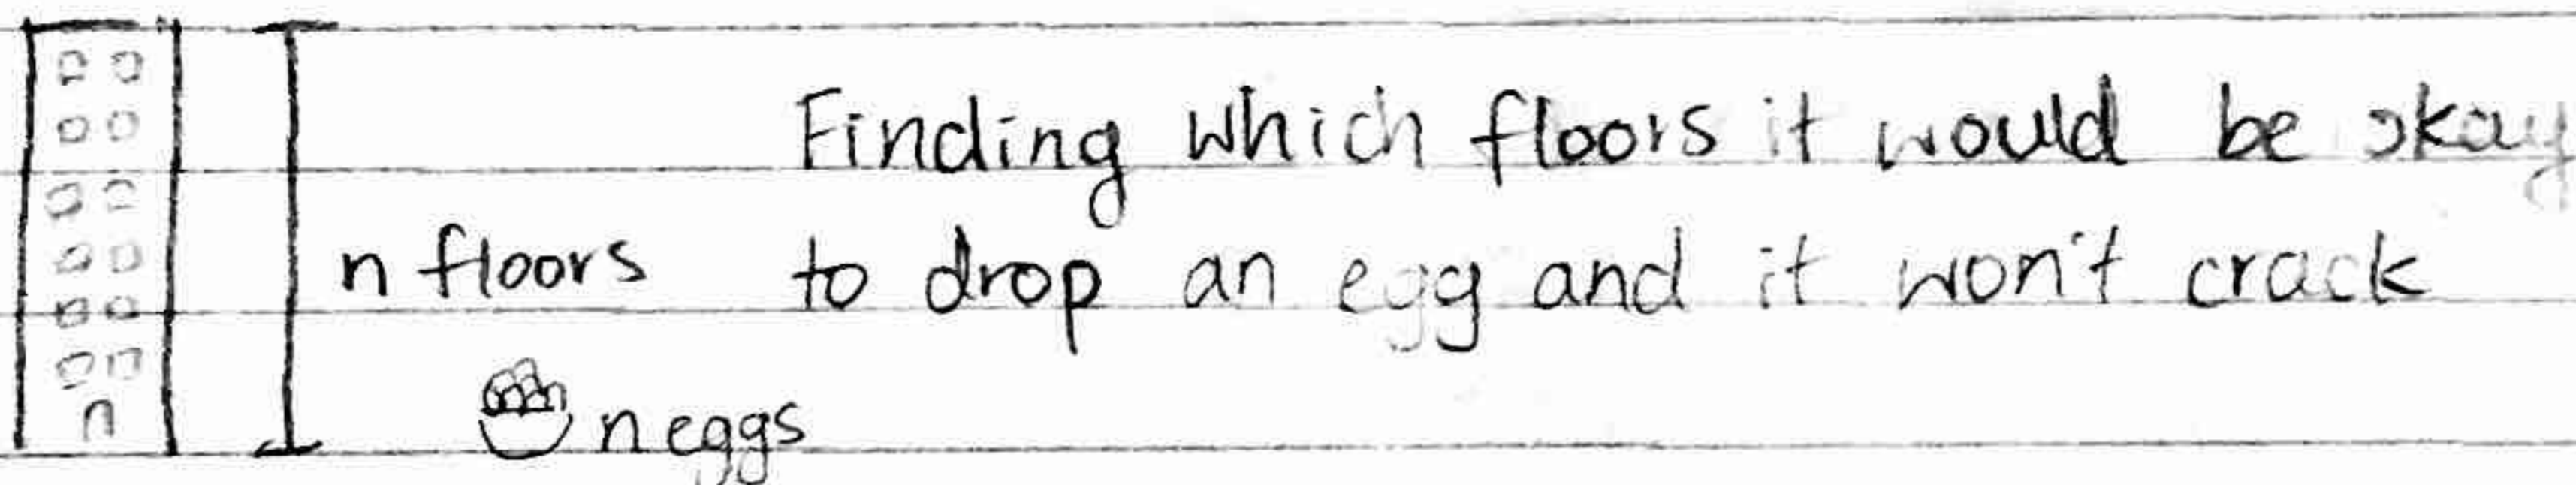 Finding which floors it would be okay
n floors to drop an egg and it won't crack
n eggs